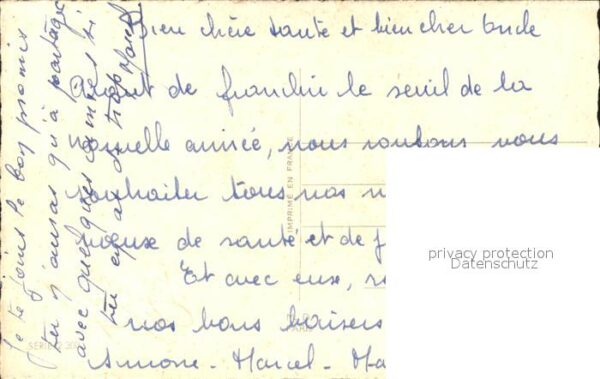 Bien chère tante et bien cher oncle
Avant de franchir le seuil de la
nouvelle année, nous voulons vous
souhaiter tous nos
voeux de santé et de
Et avec eux,
nos bons baisers
Simone - Marcel -
Je te joins le bon promis
tu n'auras qu'à partager
avec quelques comprés si
tu en as de trop
Marcel
IMPRIMÉ EN FRANCE
PARIS
SERIE
privacy protection
Datenschutz